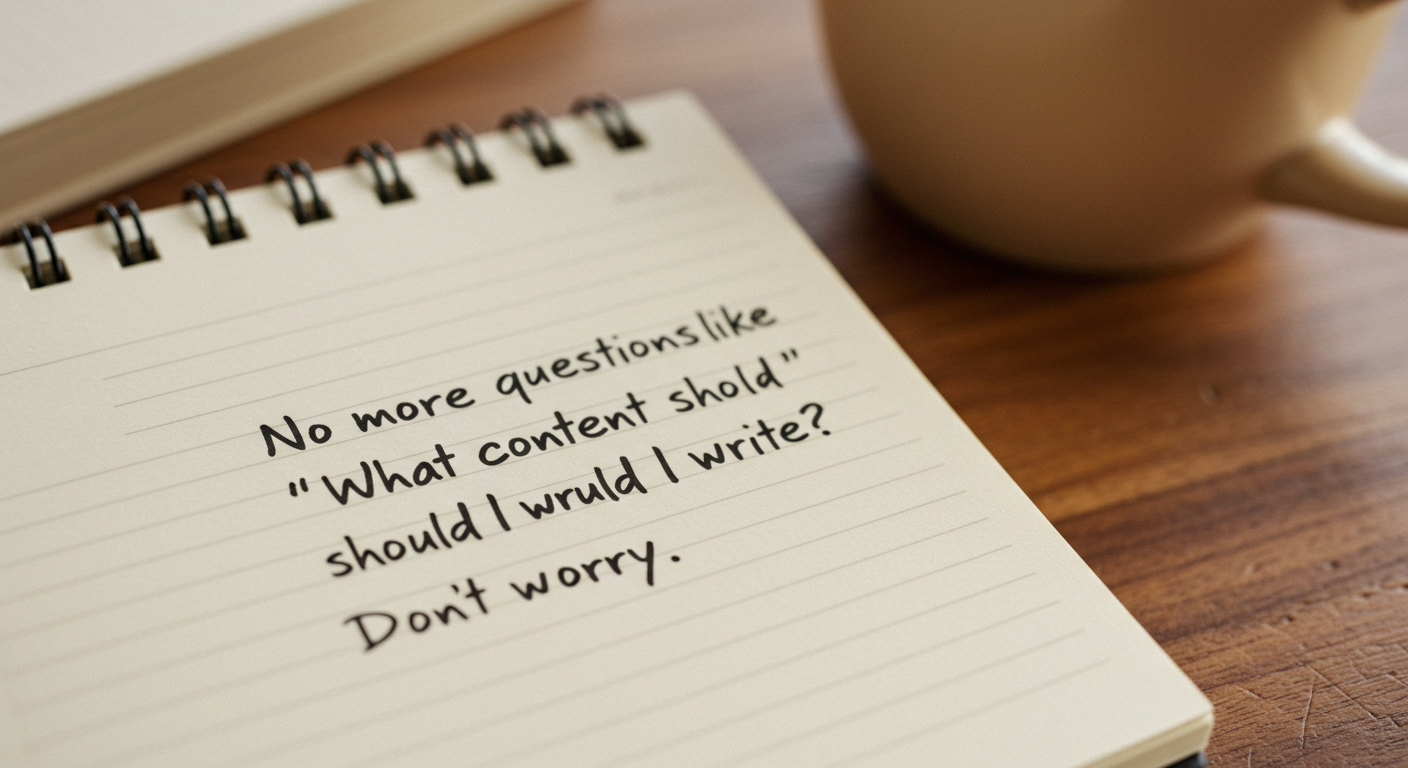 No more questions like
“What content shold”
should I wruld I write?
Don't worry.